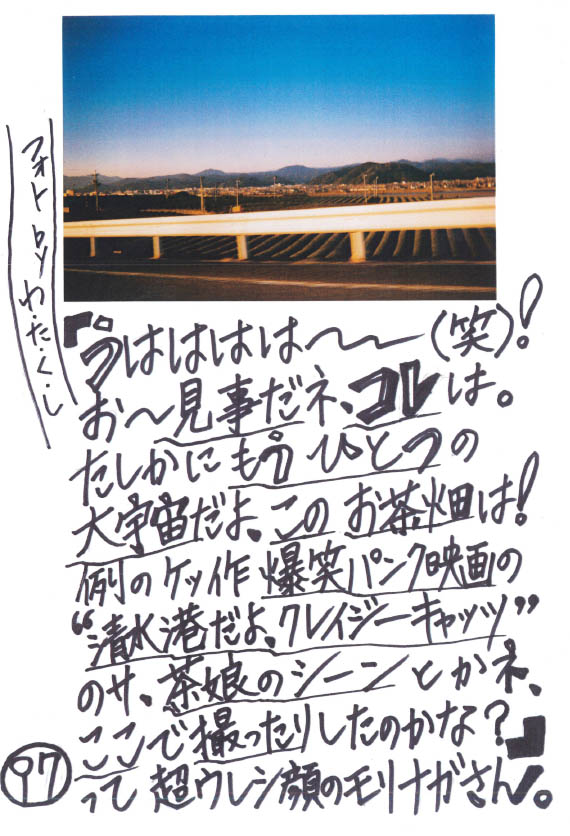 フォト by わ・た・く・し
『うはははは〜〜(笑)!
お〜見事だネ、コレは。
たしかにもうひとつの
大宇宙だよ、このお茶畑は!
例のケッ作爆笑パンク映画の
“清水港だよ、クレイジーキャッツ”
のサ、茶娘のシーンとかネ、
ここで撮ったりしたのかな?』
って超ウレシ顔のモリナガさん!。
97